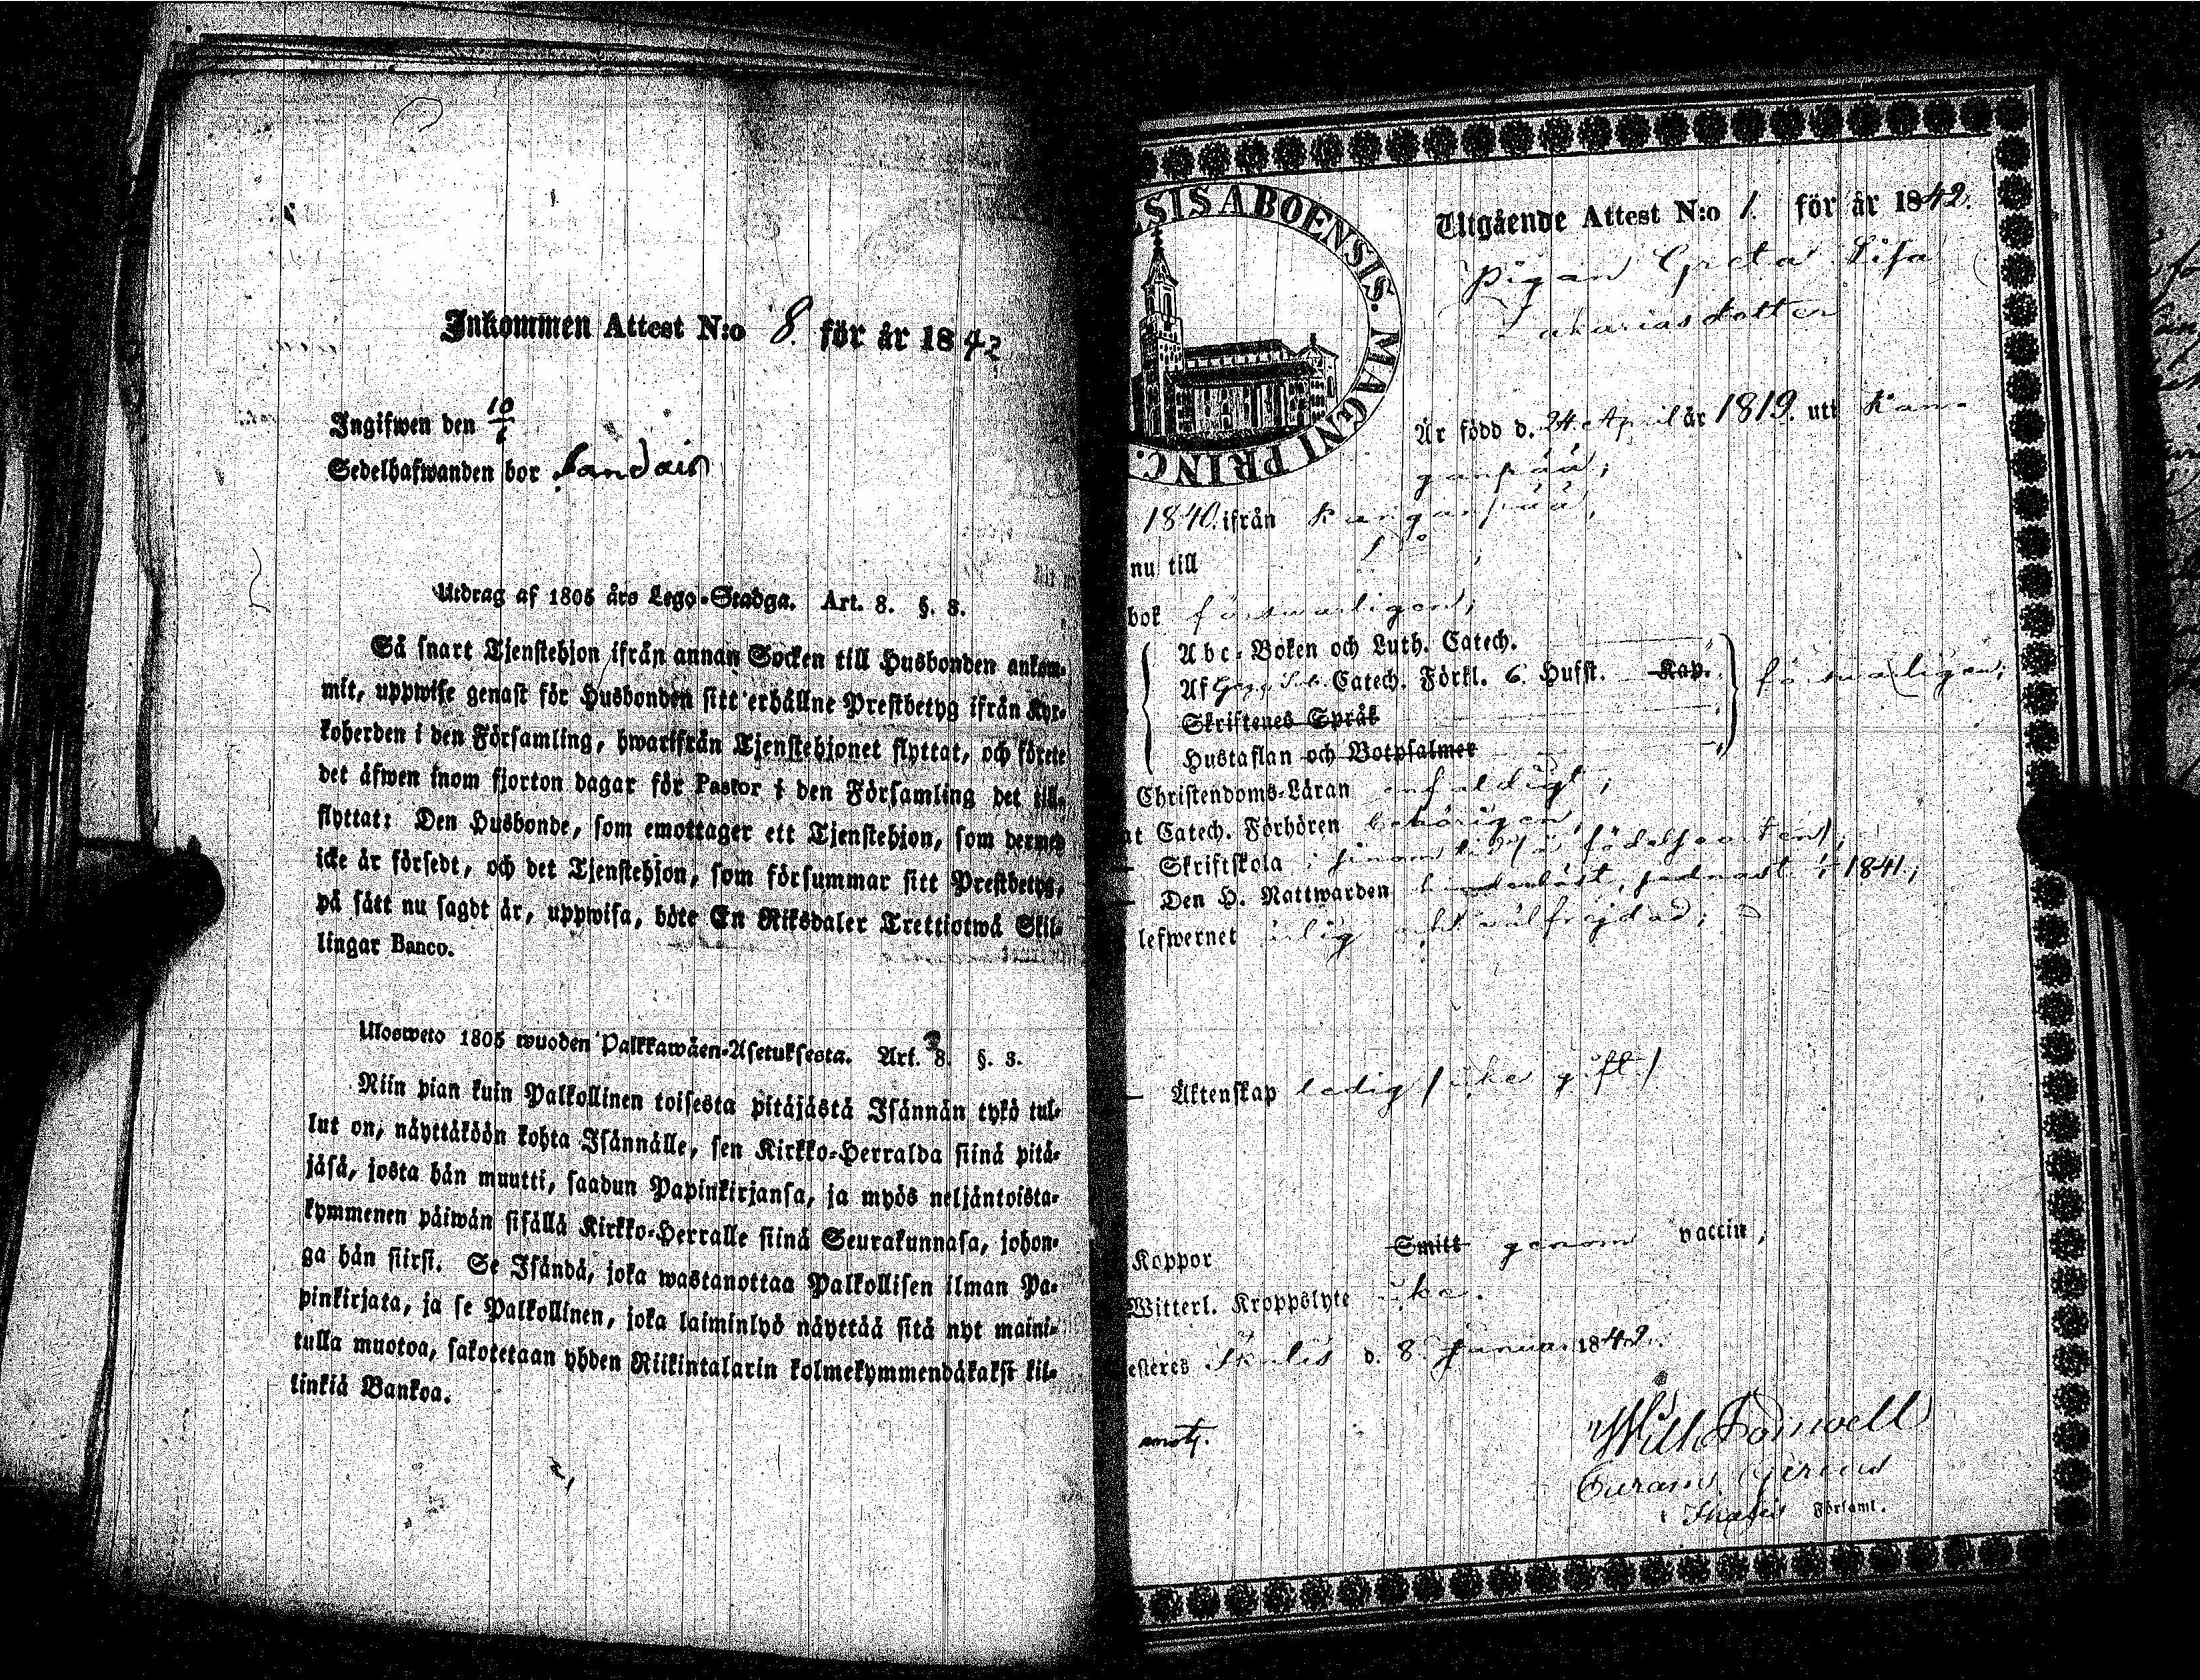 Inkommen Attest N:o 8. för år 1842
Ingifwen den 10/6
Sedelhafwanden bor Sandais
Utdrag af 1805 års Lego-Stadga. Art. 8. §. 3.
Så snart Tjenstehjon ifrån annan Socken till Husbonden ankom-
mit, uppwise genast för Husbonden sitt erhållne Prestbetyg ifrån Kyr-
koherden i den Församling, hwarifrån Tjenstehjonet flyttat, och förete
det äfwen inom fjorton dagar för Pastor i den Församling det till-
flyttat: Den Husbonde, som emottager ett Tjenstehjon, som dermed
icke är försedt, och det Tjenstehjon, som försummar sitt Prestbetyg,
på sätt nu sagdt är, uppwisa, böte En Riksdaler Trettiotwå Skil-
lingar Banco.
Ulosweto 1805 wuoden Palkkawäen-Asetuksesta. Art. 8. §. 3.
Niin pian kuin Palkollinen toisesta pitäjästä Isännän tykö tul-
lut on, näyttäköön kohta Isännälle, sen Kirkko-Herralda siinä pitä-
jäsä, josta hän muutti, saadun Papinkirjansa, ja myös neljäntoista-
kymmenen päiwän sisällä Kirkko-Herralle siinä Seurakunnasa, johon-
ga hän siirsi. Se Isändä, joka wastanottaa Palkollisen ilman Pa-
pinkirjata, ja se Palkollinen, joka laiminlyö näyttää sitä nyt maini-
tulla muotoa, sakotetaan yhden Riikintalarin kolmekymmendäkaksi kil-
linkiä Bankoa.
SIS ABOENSIS. MAGNI PRINC.
Utgående Attest N:o 1. för år 1842.
Pigan Greta Lisa
Zakariasdotter
Är född d. 24 April år 1819. uti Kan-
ganpää;
1840. ifrån Kanganpää,
nu till
bok försvarligen;
Abc-Boken och Luth. Catech.
Af Catech. Förkl. 6. Hufst. Kap. försvarligen;
Skriftenes Språk
Hustaflan och Botpsalmer
Christendoms-Läran enfaldigt;
at Catech. Förhören behörigen,
Skriftskola födelseorten;
Den H. Nattwarden sednast 1841;
lefwernet ärlig och välfrejdad;
Äktenskap ledig / icke gift /
Koppor Smitt genom vaccin,
Witterl. Kroppslyte icke.
esteres d. 8 Januar. 1842.
Församl.